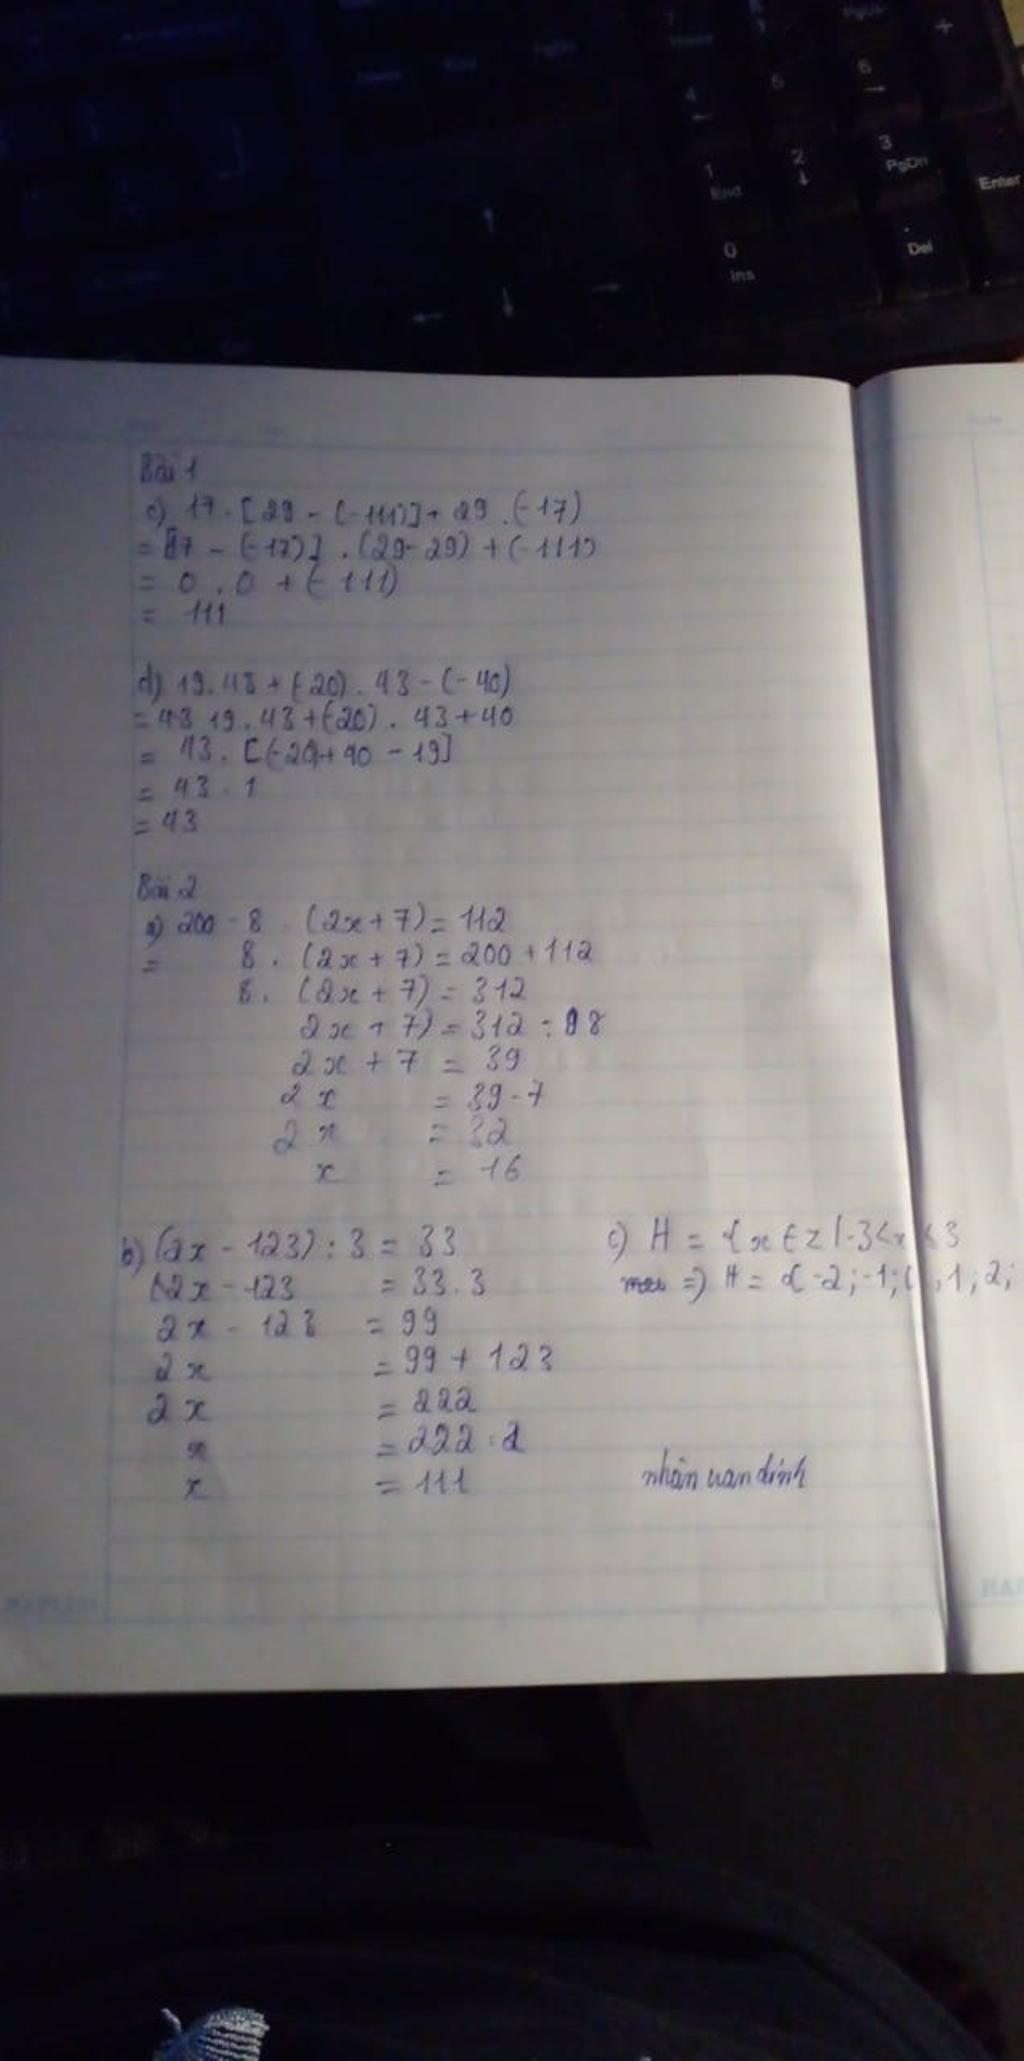 6
4
←
6
→
1
End
2
↓
3
PgDn
Enter
↑
0
Ins
.
Del
←
↓
→
Bài 1
c) 17 . [29 - (-111)] + 29 . (-17)
= [17 - (-17)] . (29-29) + (-111)
= 0 . 0 + (-111)
= 111
d) 19.43 + (-20) . 43 - (-40)
= 43 19 . 43 + (-20) . 43 + 40
= 43 . [(-20)+40 - 19]
= 43 . 1
= 43
Bài 2
a) 200 - 8 . (2x + 7) = 112
= 8 . (2x + 7) = 200 + 112
8 . (2x + 7) = 312
2x + 7) = 312 : 8
2x + 7 = 39
2x = 39 - 7
2x = 32
x = 16
b) (2x - 123) : 3 = 33
2x - 123 = 33 . 3
2x - 123 = 99
2x = 99 + 123
2x = 222
x = 222 : 2
x = 111
c) H = { x ∈ Z | -3 < x ≤ 3
=> H = { -2 ; -1 ; , 1 ; 2 ;
nhân van đinh